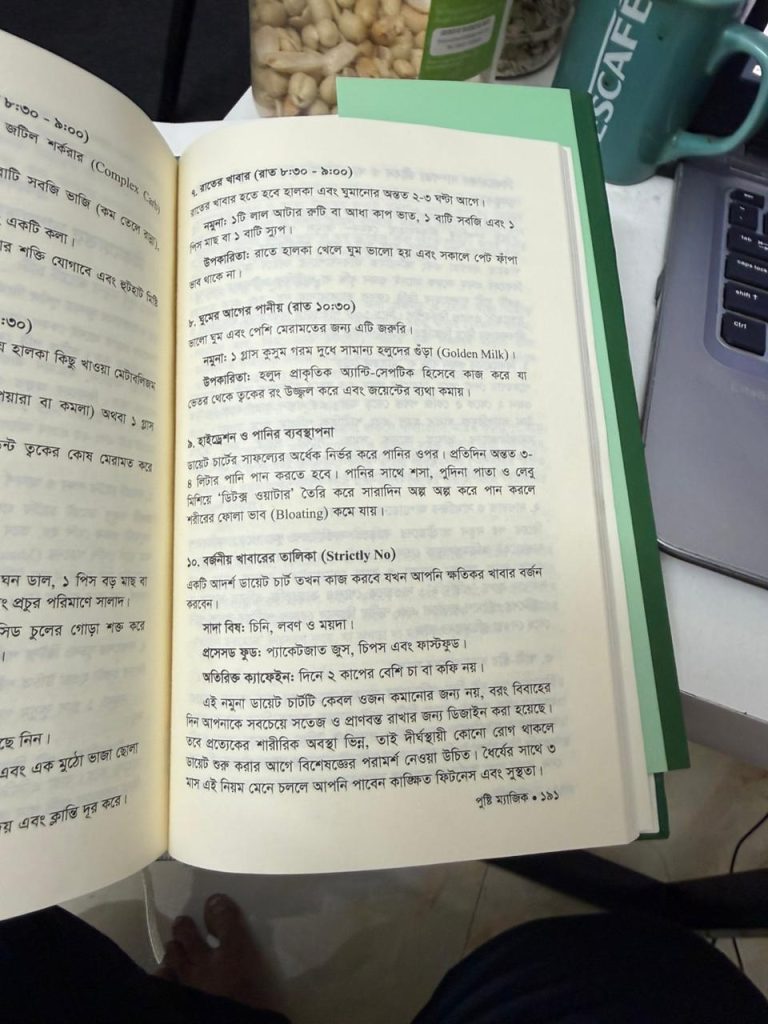 ৮:৩০ - ৯:০০)
জটিল শর্করার (Complex Carb)
বাটি সবজি ভাজি (কম তেলে রান্না),
একটি কলা।
শক্তি যোগাবে এবং হুটহাট মিষ্টি
:৩০)
হালকা কিছু খাওয়া মেটাবলিজম
পেয়ারা বা কমলা) অথবা ১ গ্লাস
ত্বকের কোষ মেরামত করে
ঘন ডাল, ১ পিস বড় মাছ বা
প্রচুর পরিমাণে সালাদ।
চুলের গোড়া শক্ত করে
নিন।
এবং এক মুঠো ভাজা ছোলা
এবং ক্লান্তি দূর করে।
৭. রাতের খাবার (রাত ৮:৩০ - ৯:০০)
রাতের খাবার হতে হবে হালকা এবং ঘুমানোর অন্তত ২-৩ ঘণ্টা আগে।
নমুনা: ১টি লাল আটার রুটি বা আধা কাপ ভাত, ১ বাটি সবজি এবং ১
পিস মাছ বা ১ বাটি স্যুপ।
উপকারিতা: রাতে হালকা খেলে ঘুম ভালো হয় এবং সকালে পেট ফাঁপা
ভাব থাকে না।
৮. ঘুমের আগের পানীয় (রাত ১০:৩০)
ভালো ঘুম এবং পেশি মেরামতের জন্য এটি জরুরি।
নমুনা: ১ গ্লাস কুসুম গরম দুধে সামান্য হলুদের গুঁড়া (Golden Milk)।
উপকারিতা: হলুদ প্রাকৃতিক অ্যান্টি-সেপটিক হিসেবে কাজ করে যা
ভেতর থেকে ত্বকের রং উজ্জ্বল করে এবং জয়েন্টের ব্যথা কমায়।
৯. হাইড্রেশন ও পানির ব্যবস্থাপনা
ডায়েট চার্টের সাফল্যের অর্ধেক নির্ভর করে পানির ওপর। প্রতিদিন অন্তত ৩-
৪ লিটার পানি পান করতে হবে। পানির সাথে শসা, পুদিনা পাতা ও লেবু
মিশিয়ে ‘ডিটক্স ওয়াটার’ তৈরি করে সারাদিন অল্প অল্প করে পান করলে
শরীরের ফোলা ভাব (Bloating) কমে যায়।
১০. বর্জনীয় খাবারের তালিকা (Strictly No)
একটি আদর্শ ডায়েট চার্ট তখন কাজ করবে যখন আপনি ক্ষতিকর খাবার বর্জন
করবেন।
সাদা বিষ: চিনি, লবণ ও ময়দা।
প্রসেসড ফুড: প্যাকেটজাত জুস, চিপস এবং ফাস্টফুড।
অতিরিক্ত ক্যাফেইন: দিনে ২ কাপের বেশি চা বা কফি নয়।
এই নমুনা ডায়েট চার্টটি কেবল ওজন কমানোর জন্য নয়, বরং বিবাহের
দিন আপনাকে সবচেয়ে সতেজ ও প্রাণবন্ত রাখার জন্য ডিজাইন করা হয়েছে।
তবে প্রত্যেকের শারীরিক অবস্থা ভিন্ন, তাই দীর্ঘস্থায়ী কোনো রোগ থাকলে
ডায়েট শুরু করার আগে বিশেষজ্ঞের পরামর্শ নেওয়া উচিত। ধৈর্যের সাথে ৩
মাস এই নিয়ম মেনে চললে আপনি পাবেন কাঙ্ক্ষিত ফিটনেস এবং সুস্থতা।
পুষ্টি ম্যাজিক • ১৯১
ESCAFÉ
Tab
caps lock
shift
ctrl